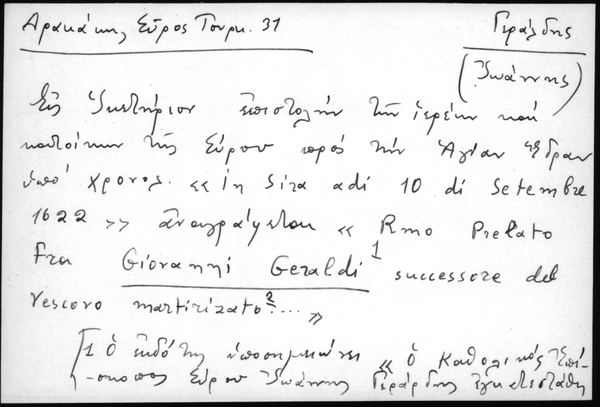 Δρακάκης Σύρος Τουρκ. 31
Γιράλδης
(Ἰωάννης)
Εἰς Ἱκετήριον ἐπιστολήν τῶν ἱερέων καί
κατοίκων τῆς Σύρου πρός τήν Ἁγίαν Ἕδραν
ὑπό χρονολ. « in Sira adi 10 di Setembre
1622 » ἀναγράφεται « Rmo Prelato
Fra Giovanni Geraldi 1 successore del
Vescovo martirizato 2 .... »
[1 ὁ ἐκδότης ὑποσημειώνει « ὁ Καθολικός Ἐπί-
-σκοπος Σύρου Ἰωάννης Γιράρδης ἐγκατεστάθη